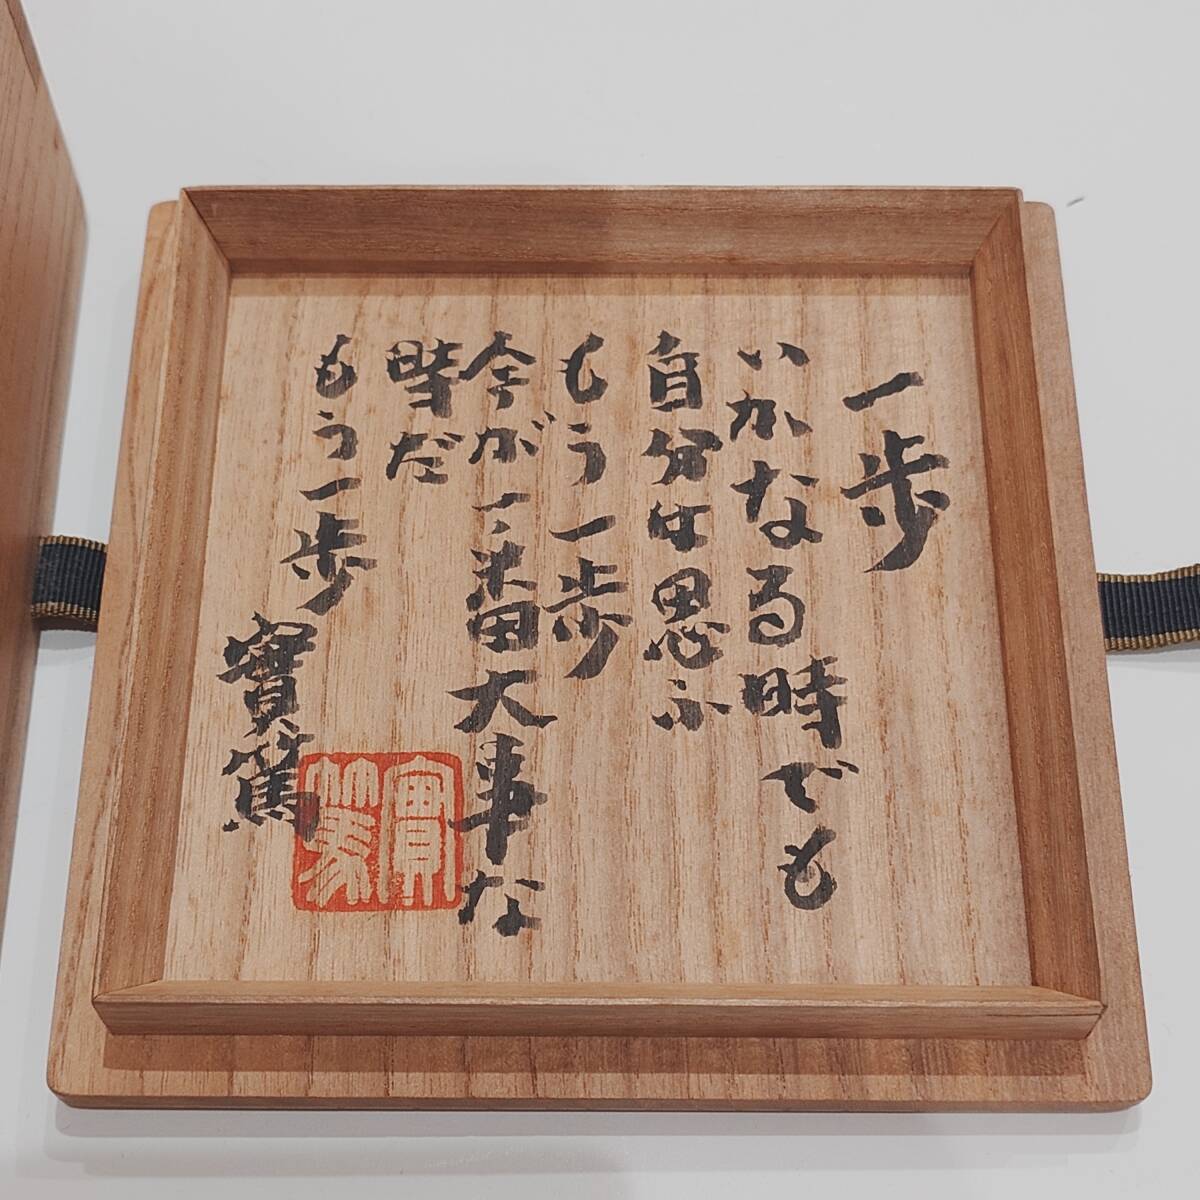 一歩
いかなる時でも
自分は思ふ
もう一歩
今が一番大事な
時だ
もう一歩
實篤
實篤